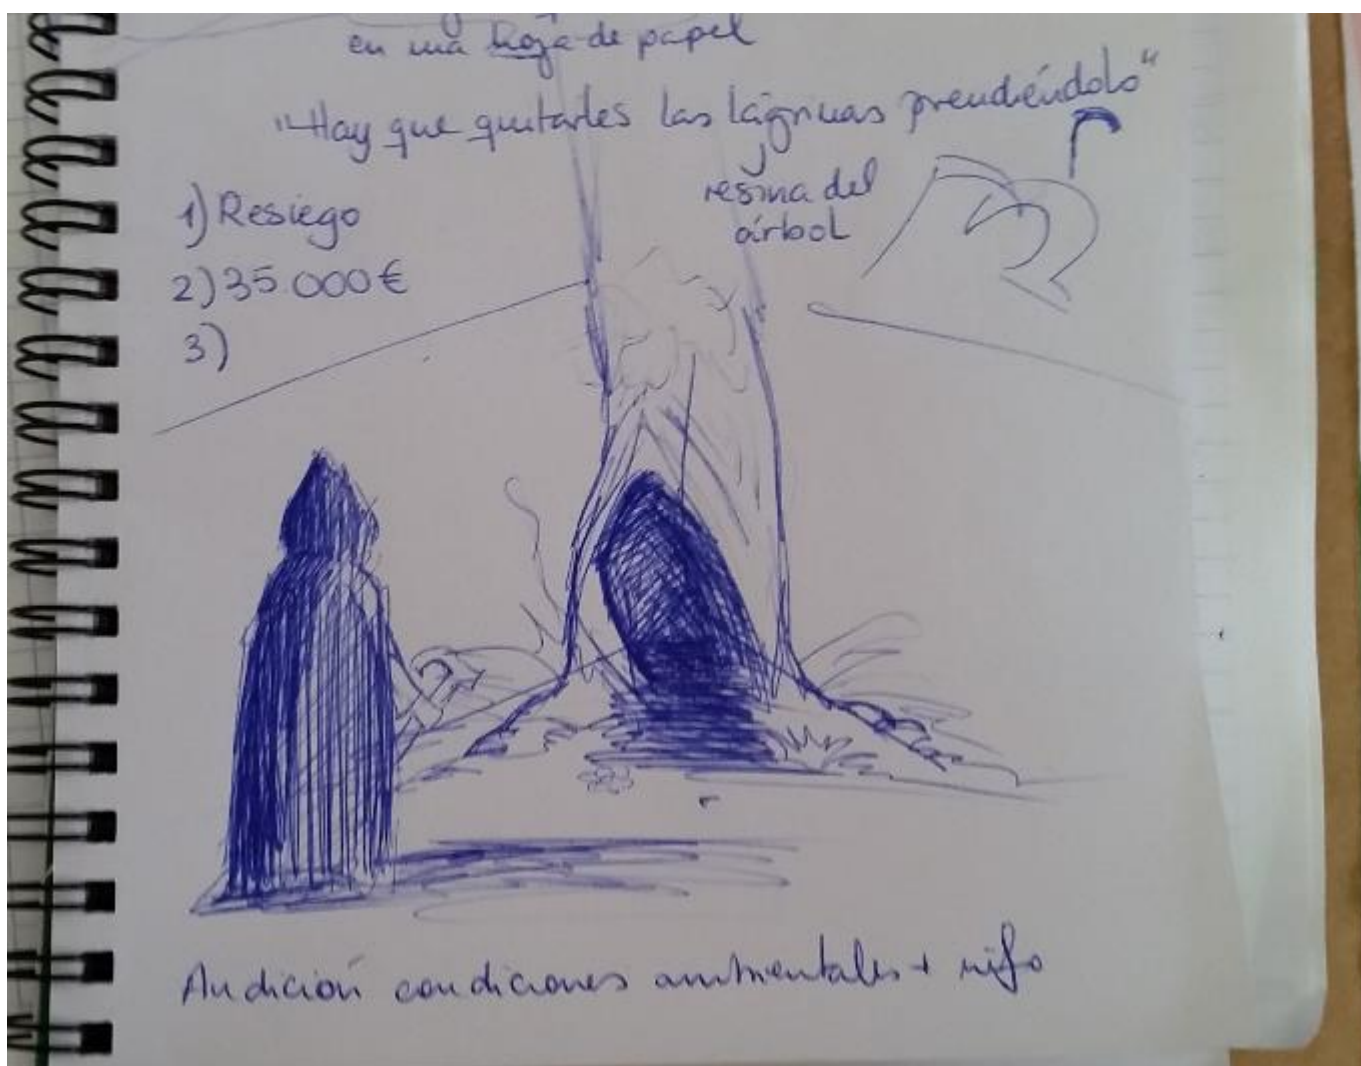 en una hoja de papel
"Hay que quitarles las lágrimas prendiéndolo"
resina del
árbol
1) Resiego
2) 35.000€
3)
Audición condiciones ambientales +